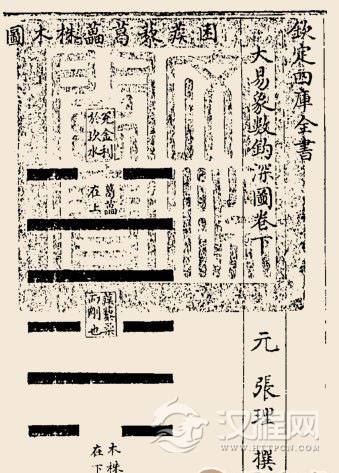 欽定四庫全書
大易象數鈎深圖卷下
元 張理 撰
困蒺藜葛藟株木圖
兌金利
於坎水
葛藟
在上
蒺藜柔
而剛也
木株
在下
汉程网